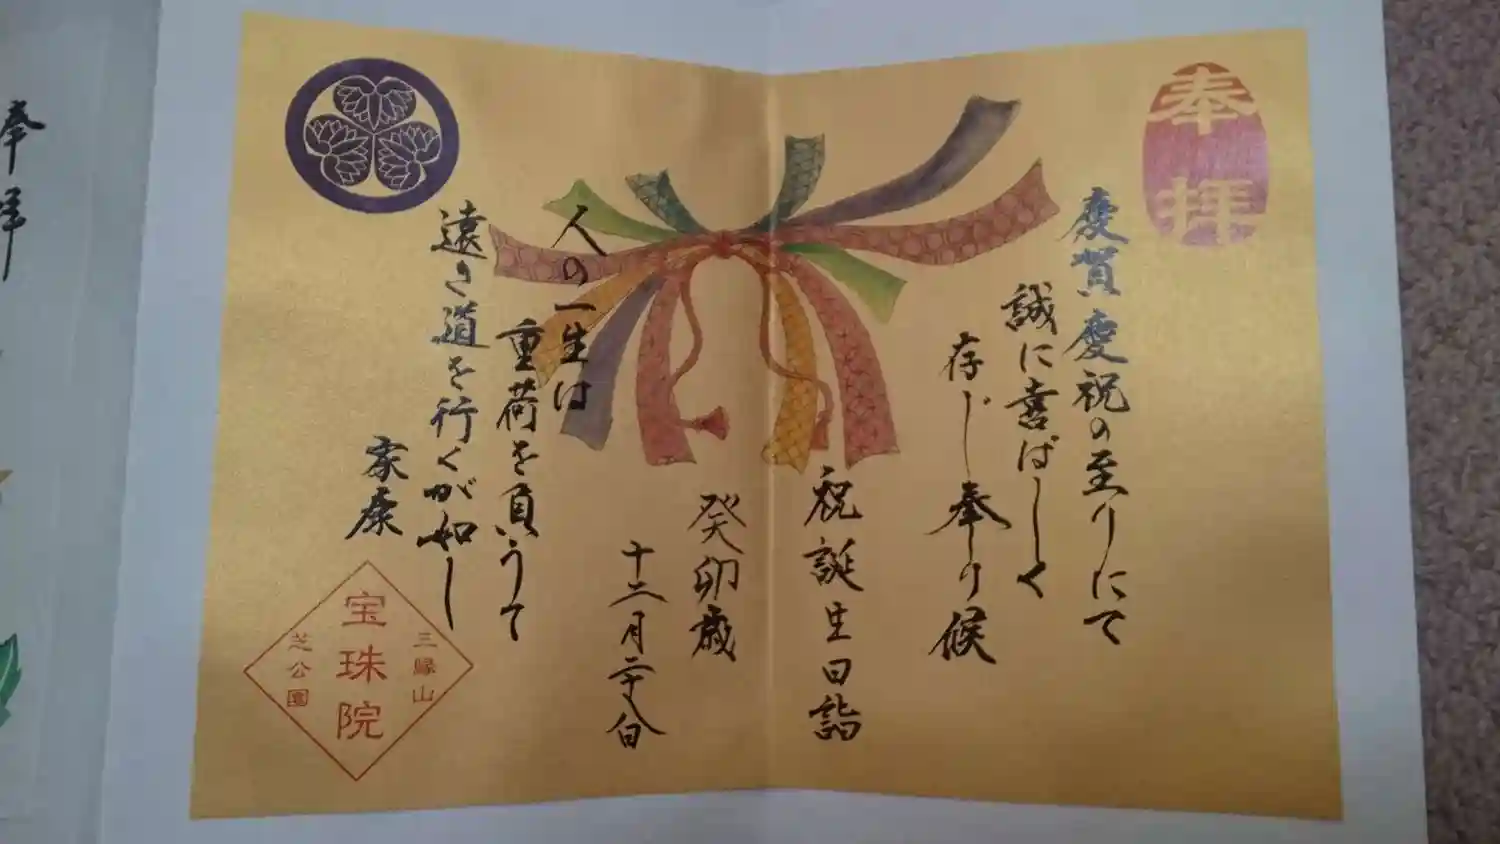 奉拝
慶賀慶祝の至りにて
誠に喜ばしく
存じ奉り候
祝誕生日詣
癸卯歳
十二月二十六日
人の一生は
重荷を負うて
遠き道を行くが如し
家康
三縁山
宝珠院
芝公園
奉拝